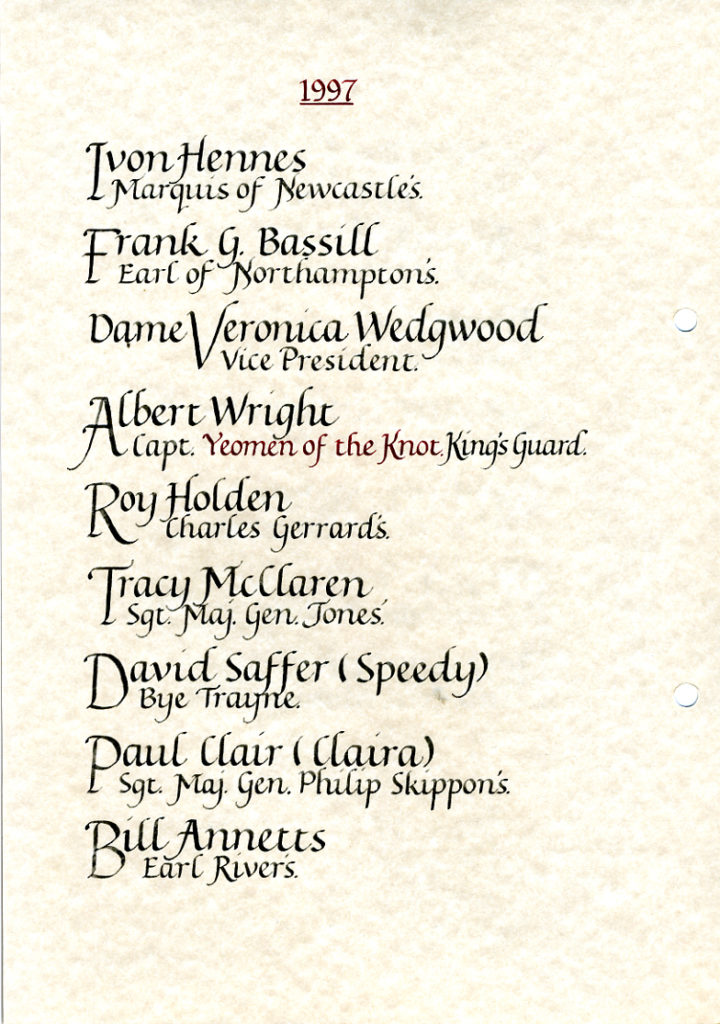 1997
Ivon Hennes
Marquis of Newcastle's.
Frank G. Bassill
Earl of Northampton's.
Dame Veronica Wedgwood
Vice President.
Albert Wright
Capt. Yeomen of the Knot. King's Guard.
Roy Holden
Charles Gerrard's.
Tracy McClaren
Sgt. Maj. Gen. Jones'.
David Saffer (Speedy)
Bye Trayne.
Paul Clair (Claira)
Sgt. Maj. Gen. Philip Skippon's.
Bill Annetts
Earl River's.